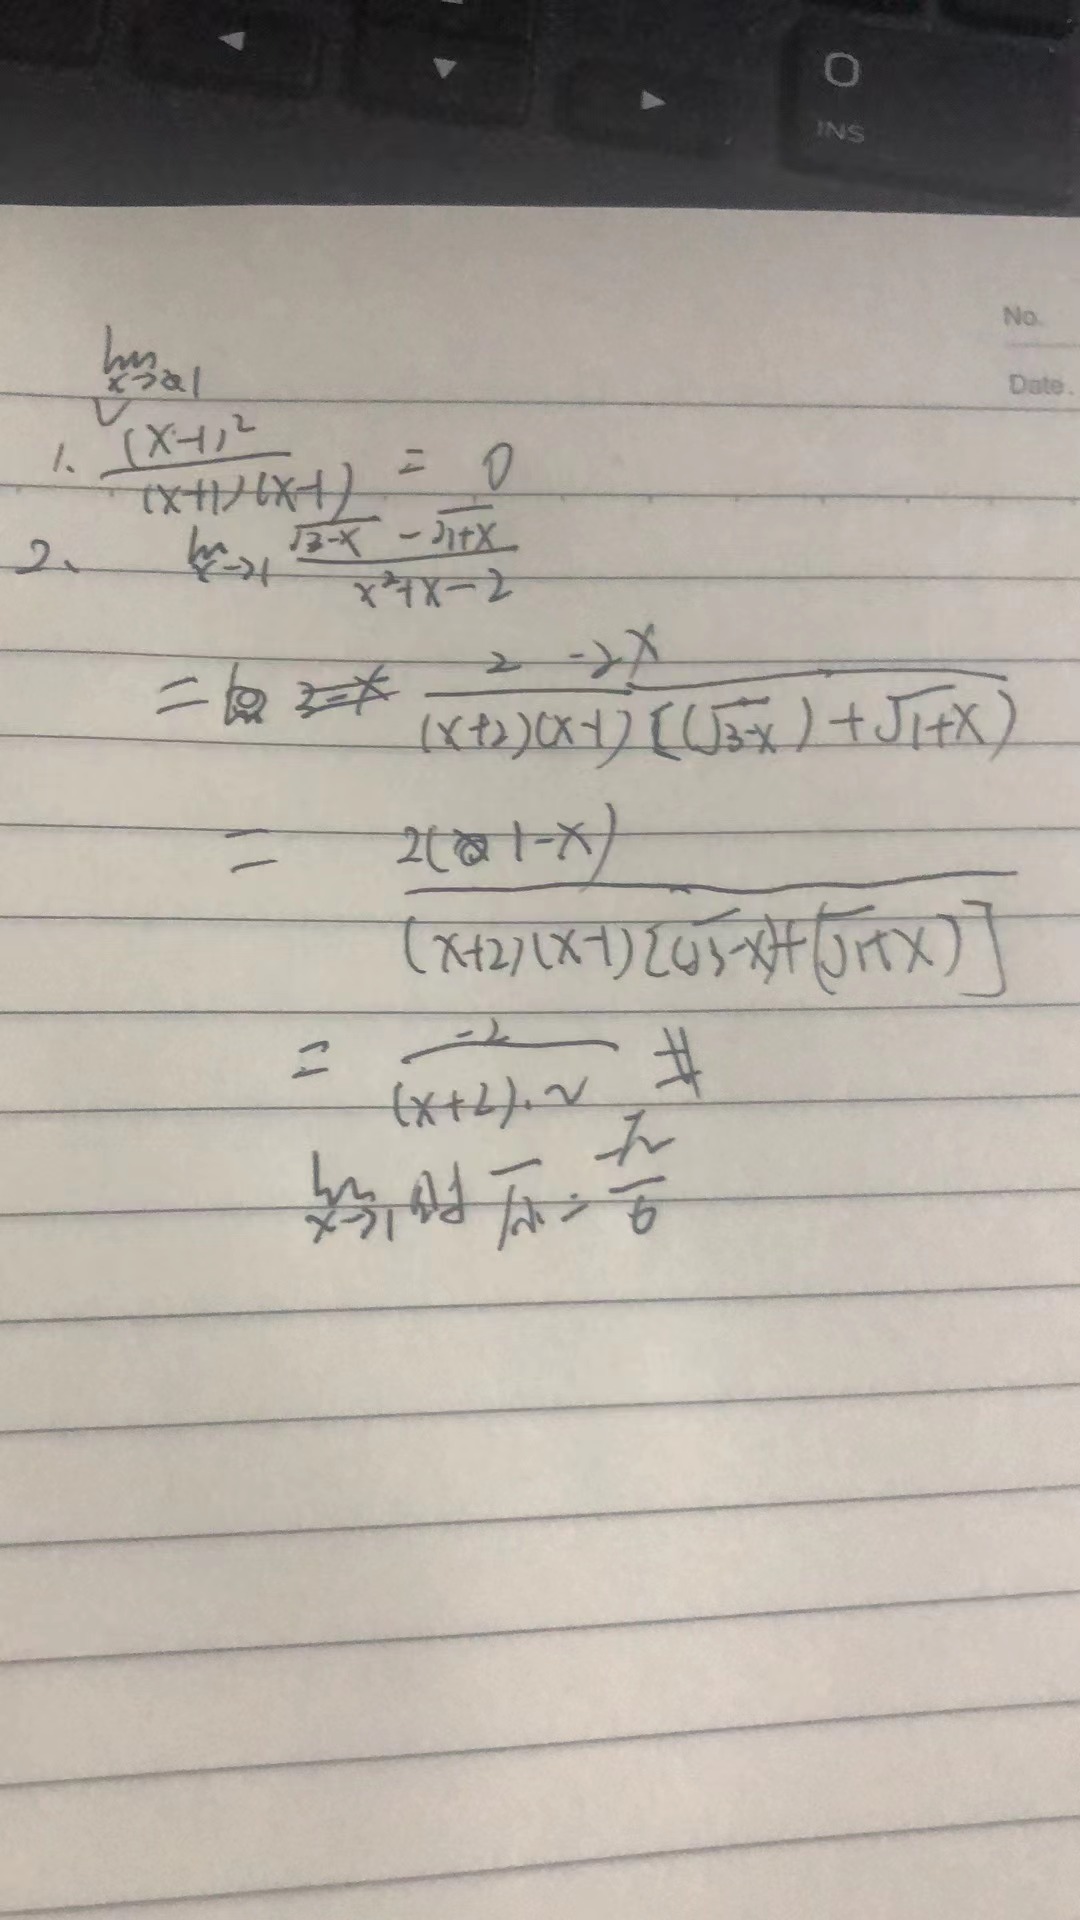 O
INS
No.
Date.
lim x→1
1. (x-1)² / (x+1)(x-1) = 0
2. lim x→1 (√3-x - √1+x) / (x²+x-2)
= (2 -2x) / (x+2)(x-1)[(√3-x)+√1+x)
= 2(1-x) / (x+2)(x-1)[(√3-x)+(√1+x)]
= -2 / (x+2)·
lim x→1 = / 6